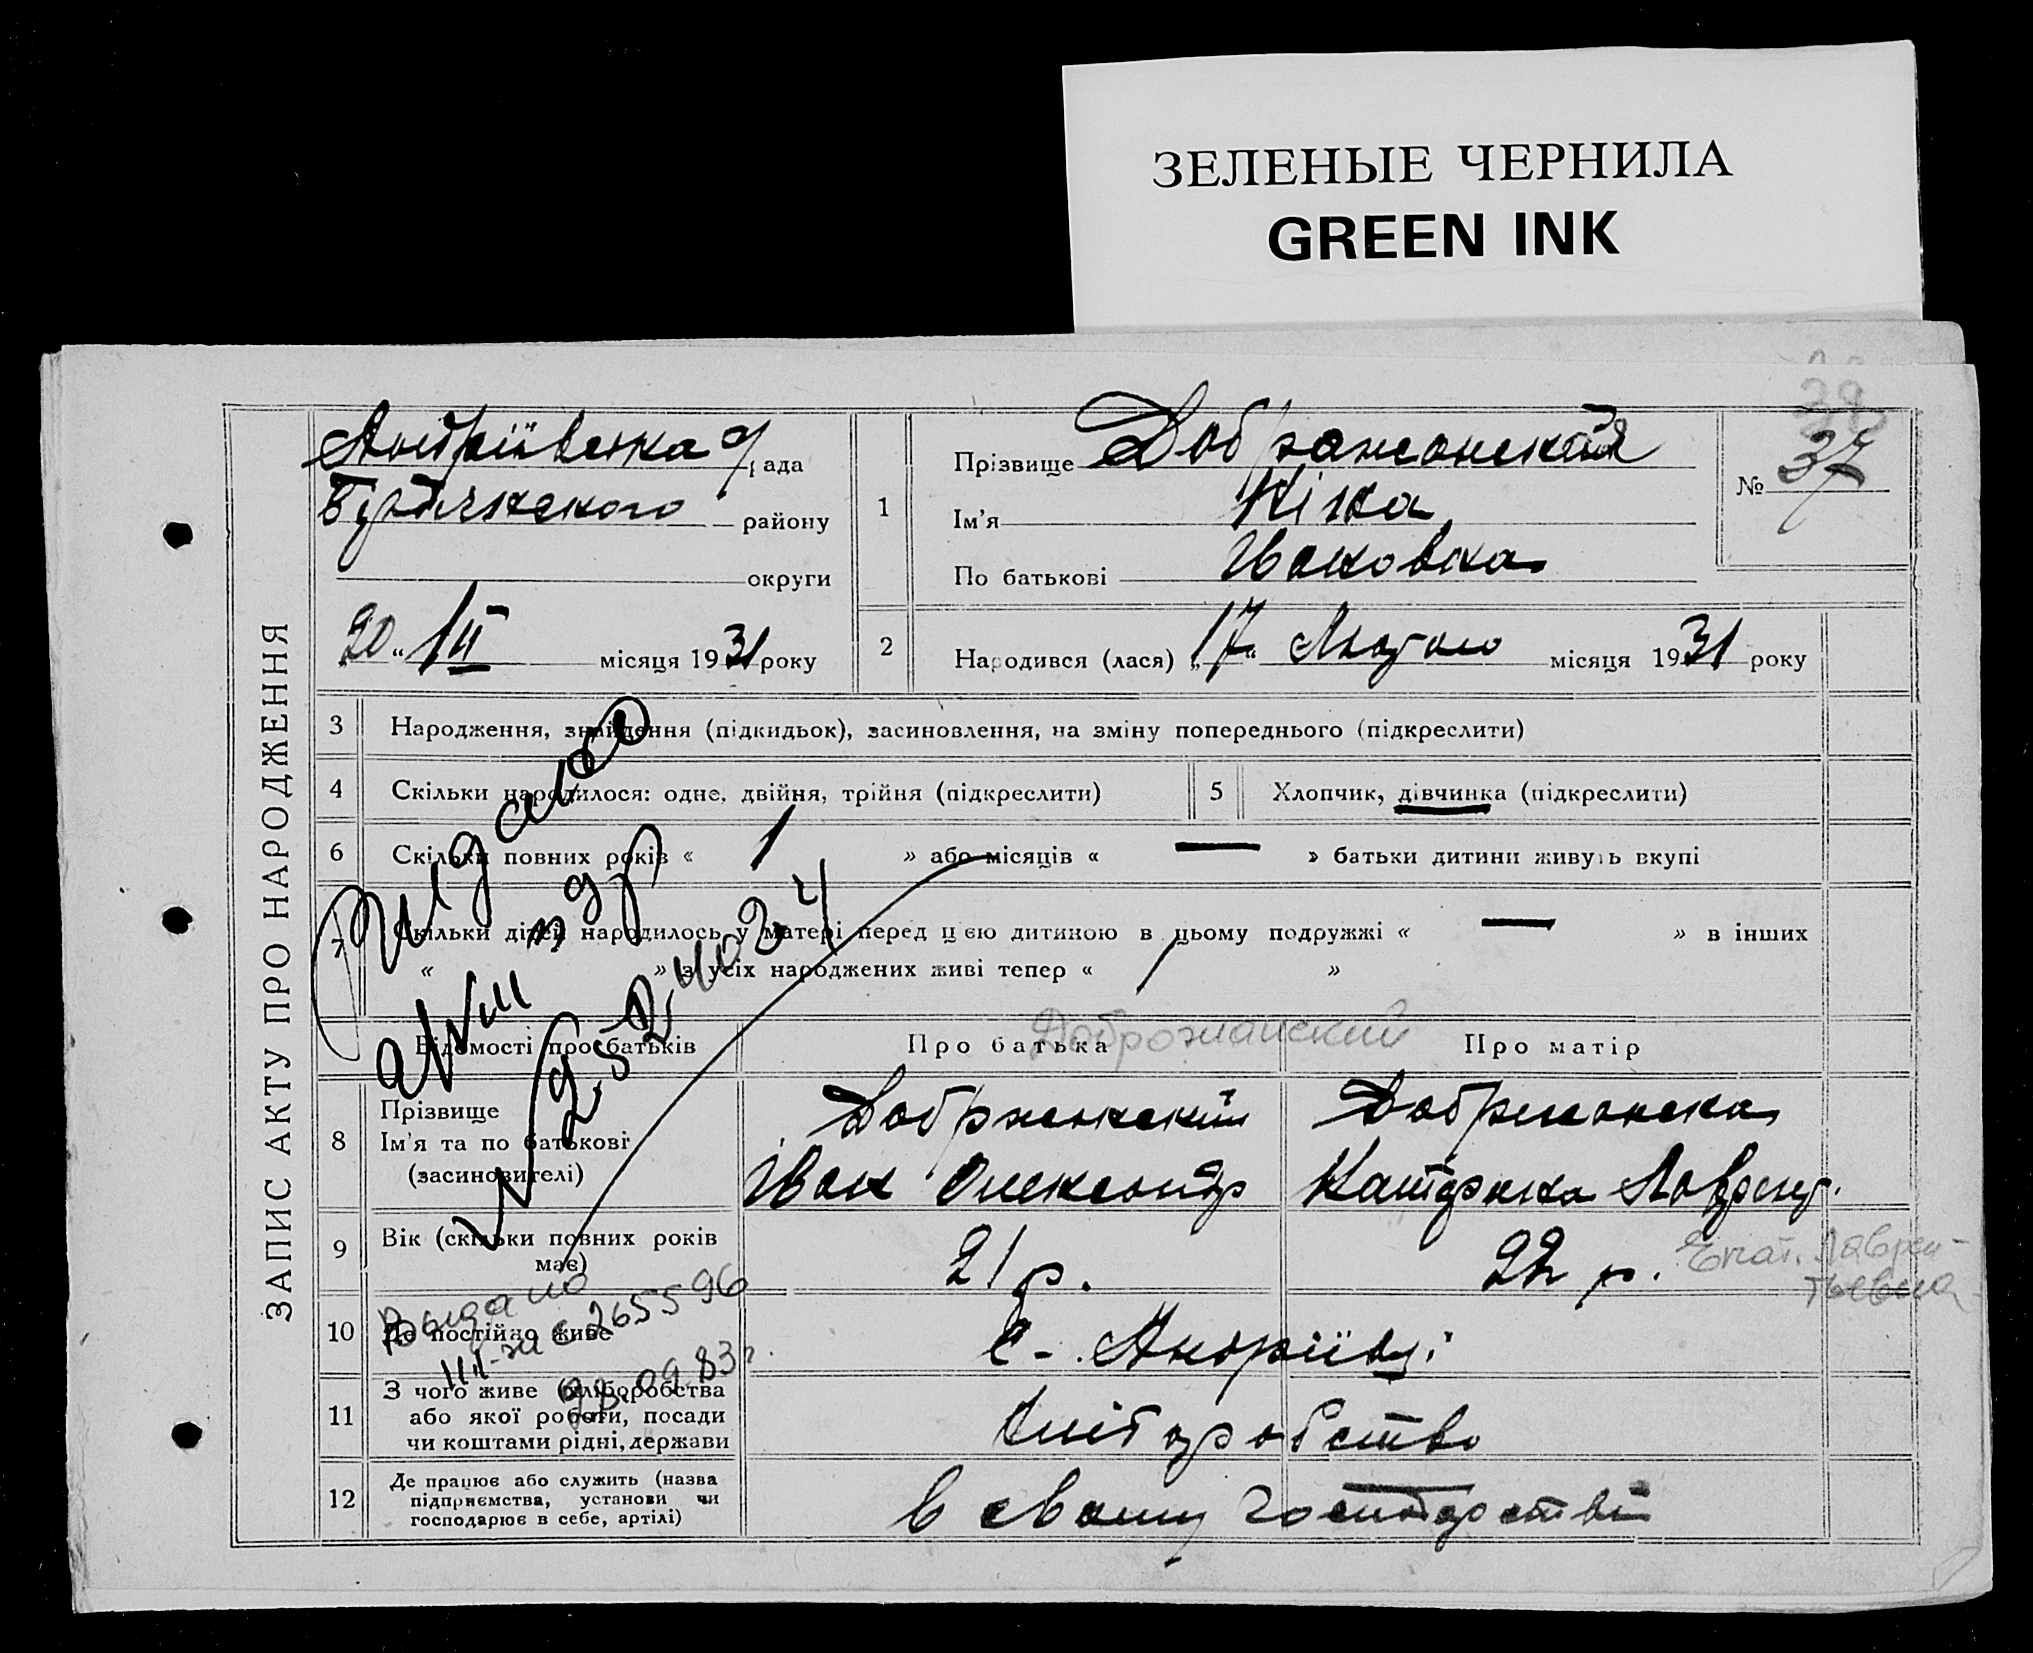 ЗЕЛЕНЫЕ ЧЕРНИЛА
GREEN INK
ЗАПИС АКТУ ПРО НАРОДЖЕННЯ
Андріївська рада
району
округи
20 " III місяця 1931 року
1
Прізвище Добржанская
Ім'я Ніна
По батькові Ивановна
№ 37
38
2
Народився (лася) „17" Лютого місяця 1931 року
3 Народження, знайдення (підкидьок), засиновлення, на зміну попереднього (підкреслити)
4 Скільки народилося: одне, двійня, трійня (підкреслити)
5 Хлопчик, дівчинка (підкреслити)
6 Скільки повних років « 1 » або місяців « — » батьки дитини живуть вкупі
7 Скільки дітей народилось у матері перед цією дитиною в цьому подружжі « — » в інших
« » з усіх народжених живі тепер « »
Відомості про батьків
Про батька
Про матір
Доброжанский
8 Прізвище
Ім'я та по батькові
(засиновителі)
Добржанский
Іван Олександр
Добржанска
Катерина Лаврент.
9 Вік (скільки повних років має)
21 р.
22 р.
Екат. Лаврен-
тьевна
10 Де постійно живе
с. Андріївці
11 З чого живе (хліборобства
або якої роботи, посади
чи коштами рідні, держави
хліборобство
12 Де працює або служить (назва
підприємства, установи чи
господарює в себе, артілі)
в своему господарстві
Видано
Выдано
265596
09.83г.